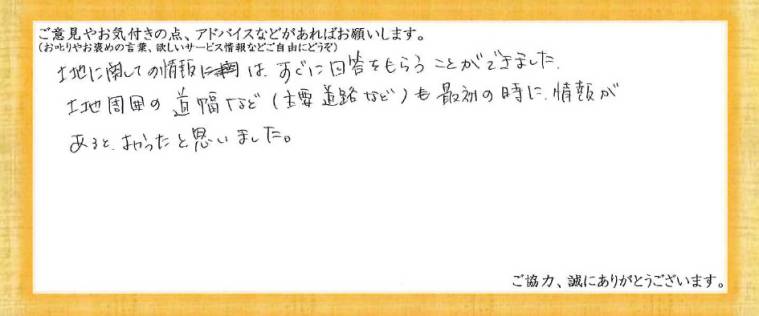 ご意見やお気付きの点、アドバイスなどがあればお願いします。
(お叱りやお褒めの言葉、欲しいサービス情報などご自由にどうぞ)
土地に関しての情報は すぐに回答をもらうことができました。
土地周囲の道幅など(主要道路など)も最初の時に、情報が
あると、よかったと思いました。
ご協力、誠にありがとうございます。